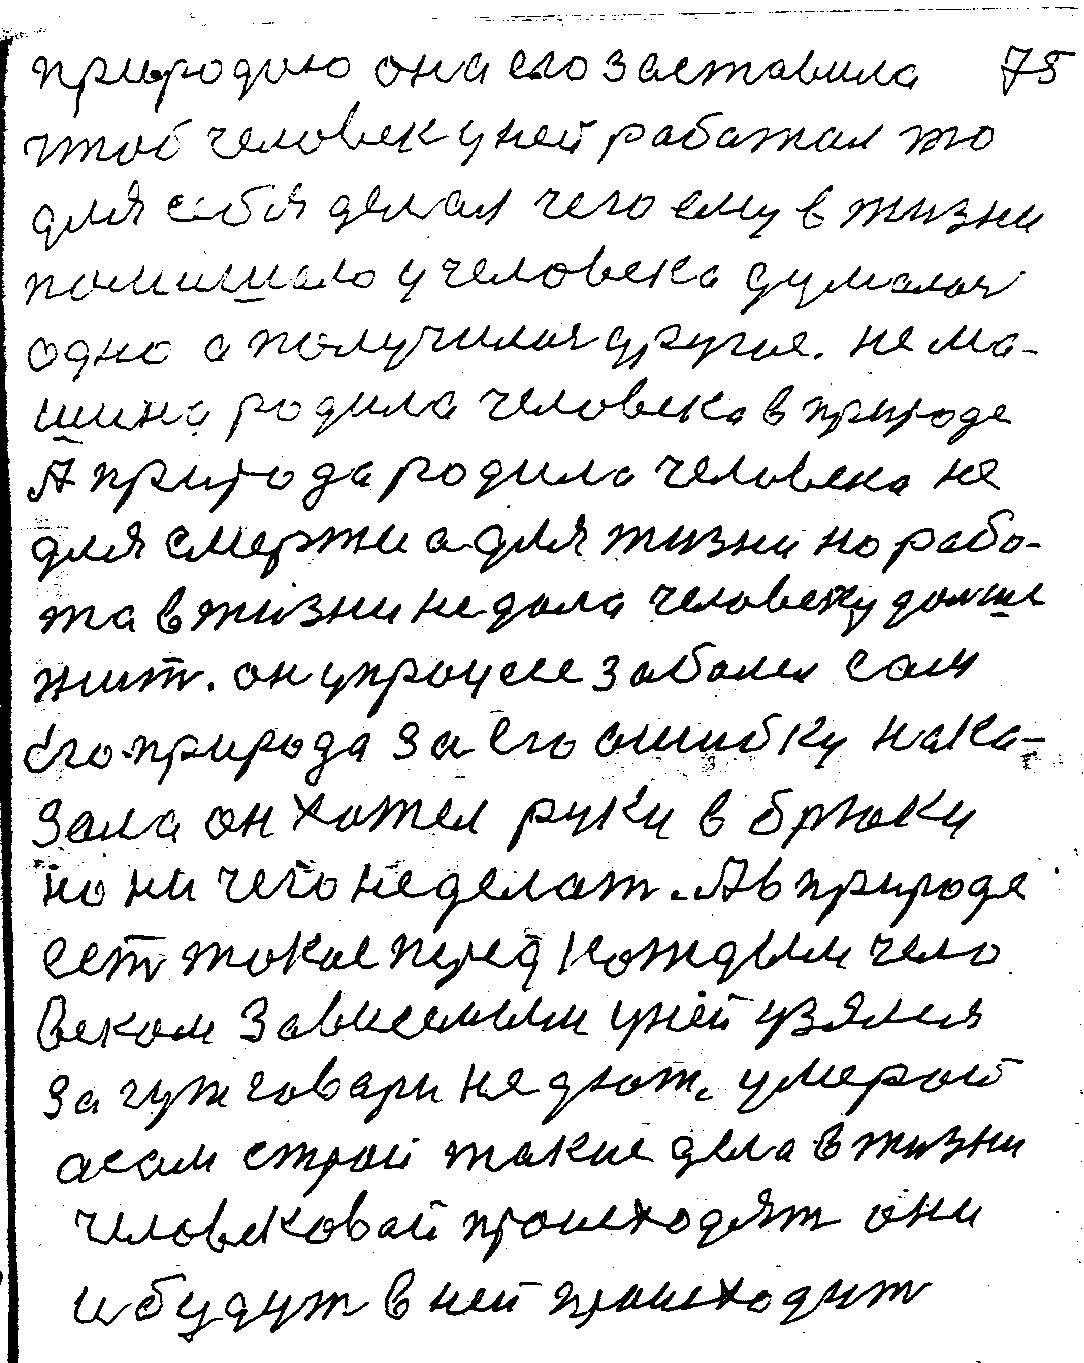 природою она его заставила 75
чтоб человек у ней работал то
для себя делал чего ему в жизни
помишало у человека думалои
одно а получилои другое. не ма-
шина родила человека в природе
А природа родила человека не
для смерти а для жизни но рабо-
та в жизни не дала человеку долше
жит. он упроцесе заболел сам
Его природа за Его ошибку нака-
зала он хотел руки в брюки
но ни чего не делат. А в природе
ест такое перед каждым чело
веком зависемым у ней узялся
за гуж говари не дюж. умерай
а сам строй такие дела в жизни
человековай происходят они
и будут в ней происходит